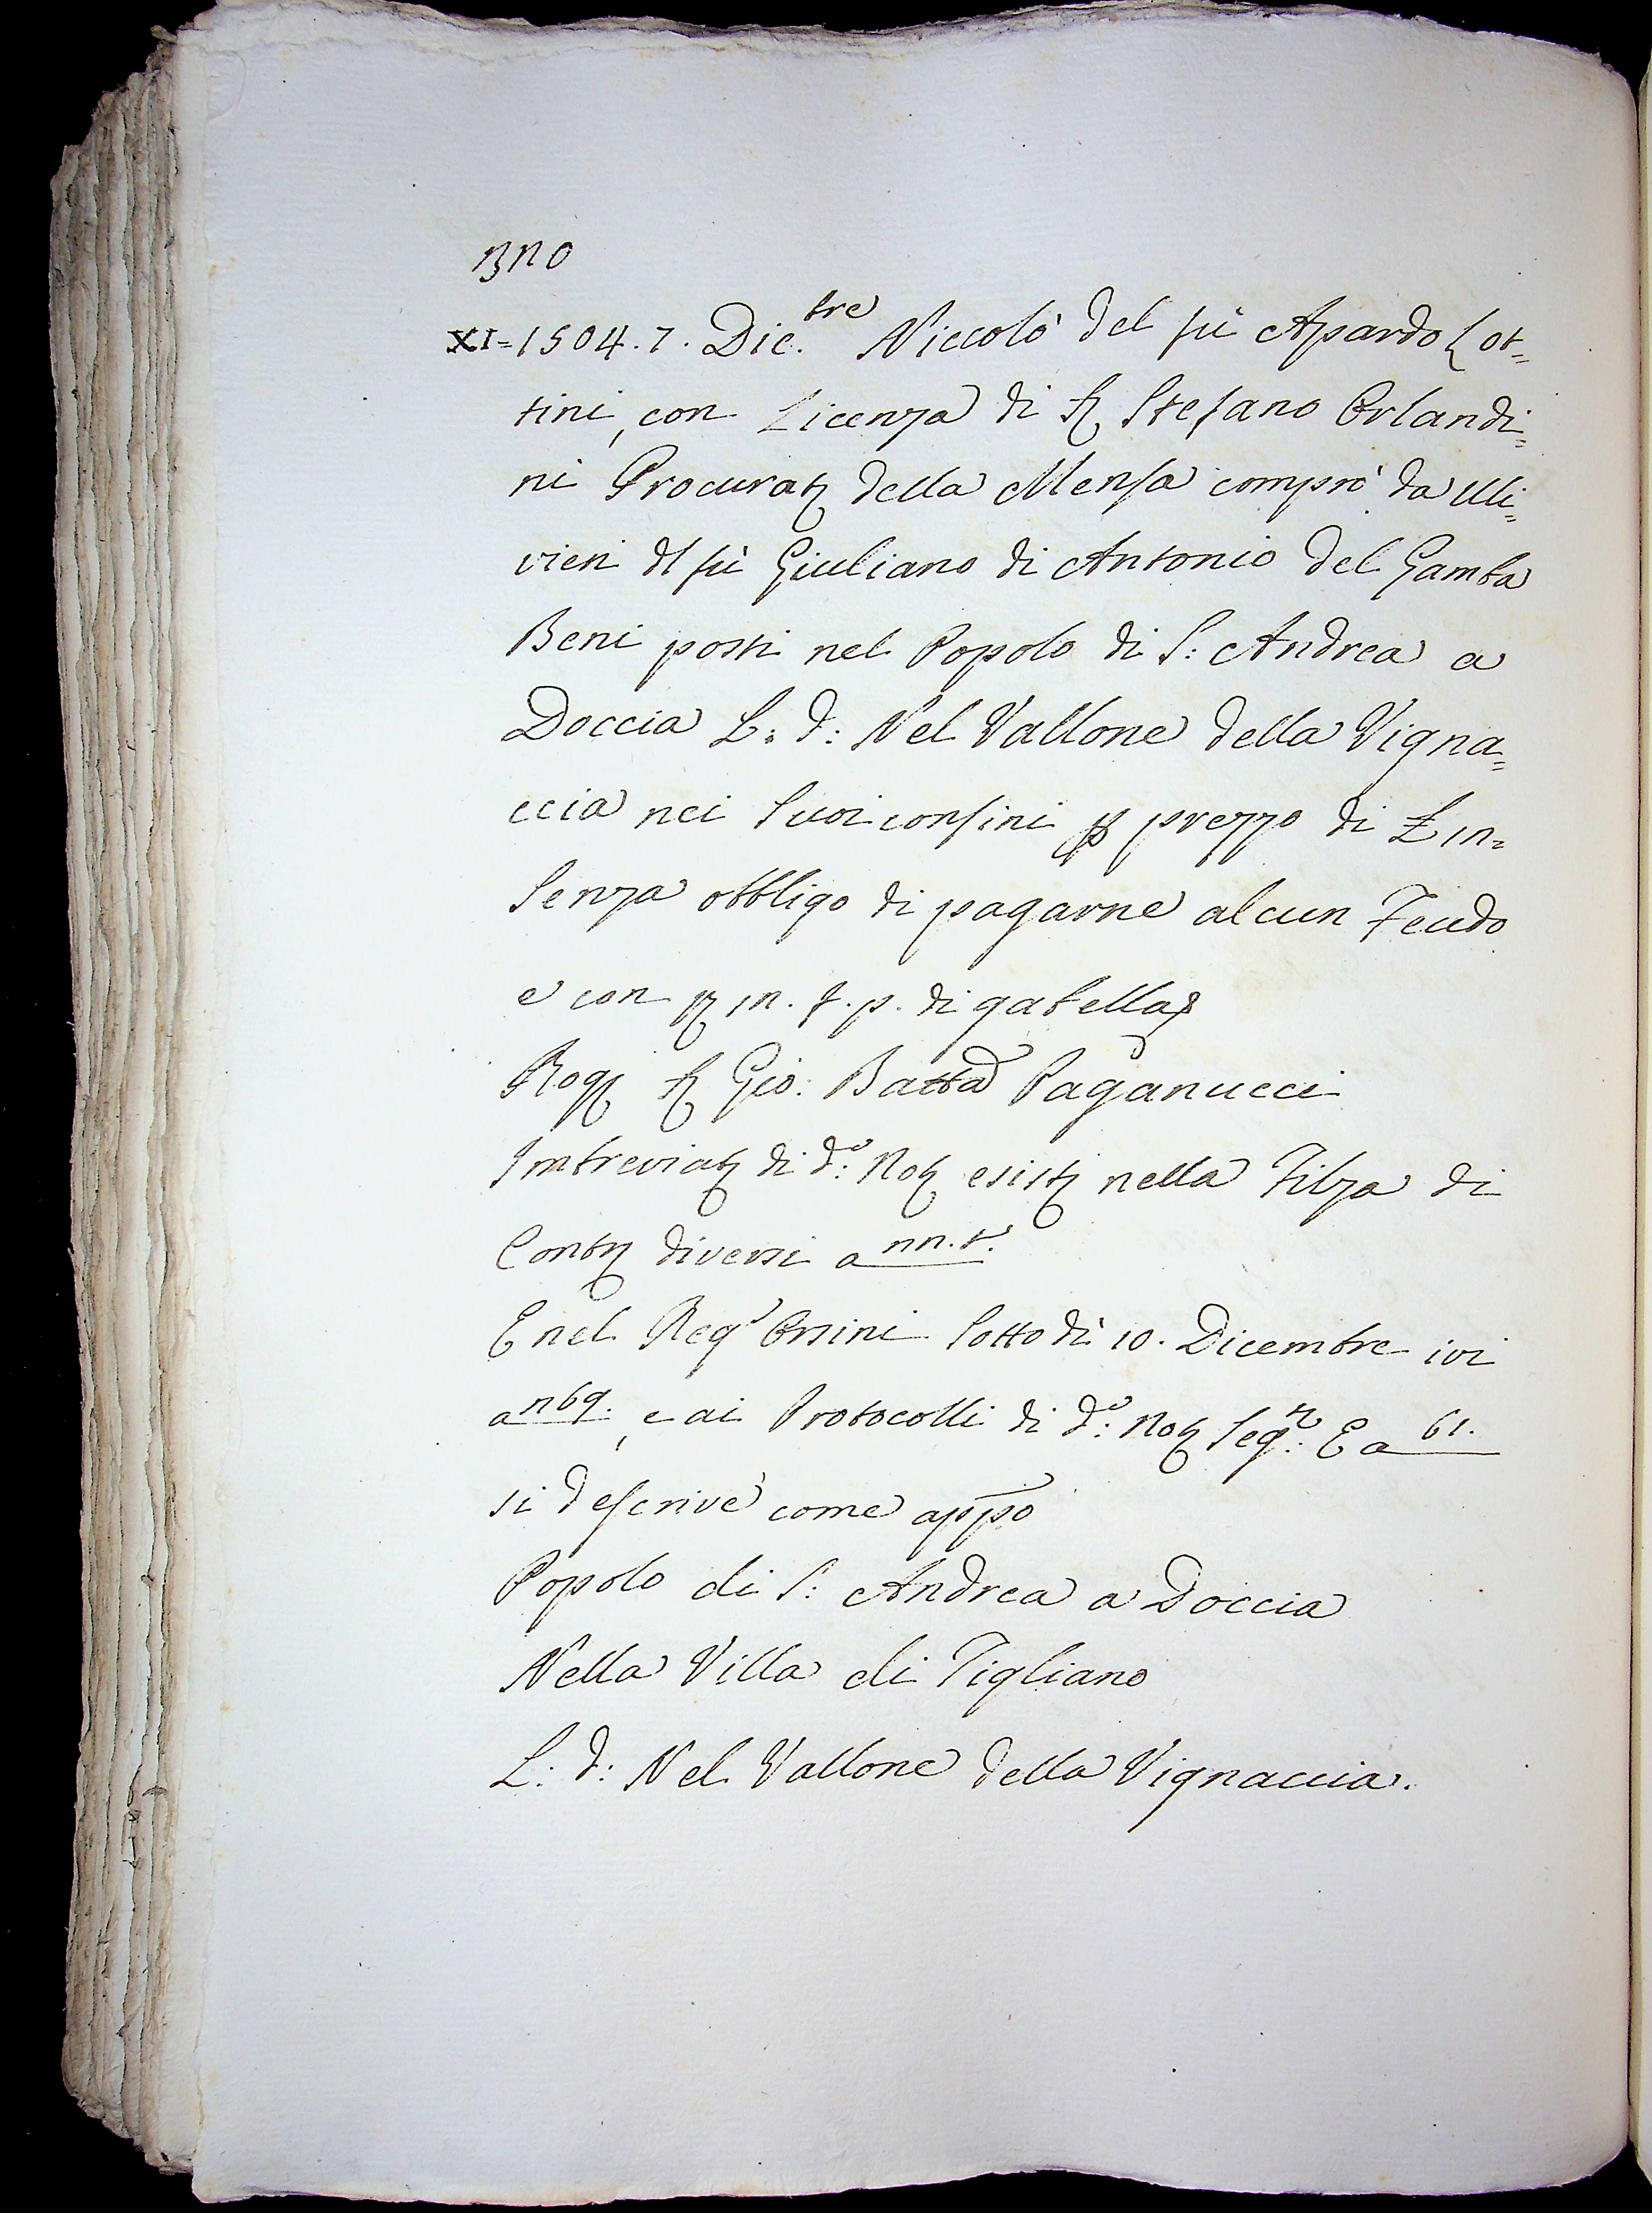 XI = 1504. 7. Dic.bre Niccolò del fù Apardo Lot=
tini, con Licenza di Sr Stefano Orlandi=
ni Procurat. della Mensa comprò da Uli=
vieri dl fù Giuliano di Antonio del Gamba
Beni posti nel Popolo di S: Andrea a
Doccia L: d: Nel Vallone della Vigna=
ccia nei suoi confini p prezzo di £
Senza obbligo di pagarne alcun Feudo
e con di gabella
Rog. Sr Gio: Batta Paganucci
Imbreviat. di do: Not. esist. nella Filza di
Contr. diversi a
E nel Rego Orsini sotto dì 10. Dicembre ivi
a e ai Protocolli di do: Not. Seg.: E a 61.
si descrive come appo
Popolo di S: Andrea a Doccia
Nella Villa di Tigliano
L: d: Nel Vallone della Vignaccia.